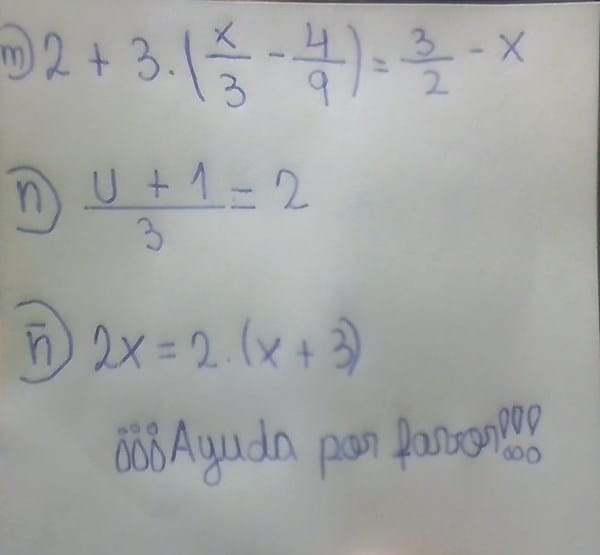 m) 2 + 3 . (x/3 - 4/9) = 3/2 - x
n) U + 1/3 = 2
ñ) 2x = 2 . (x + 3)
¡¡¡Ayuda por favor!!!